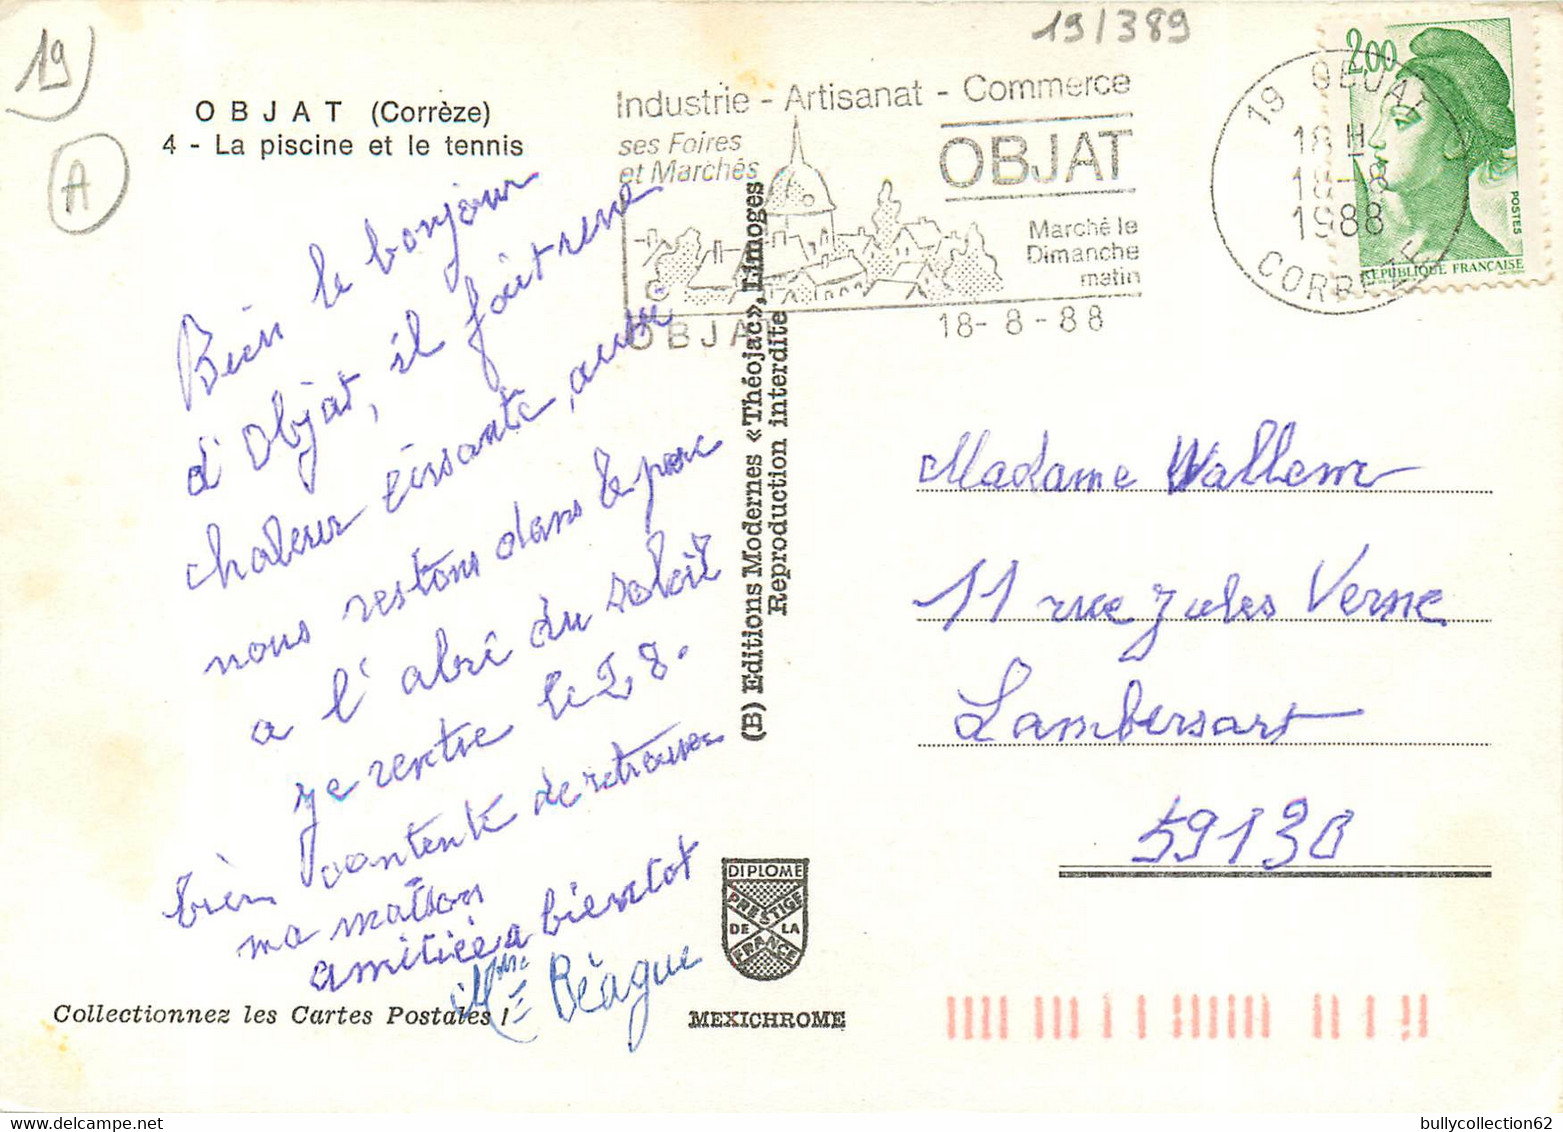 19
19/389
A
O B J A T (Corrèze)
4 - La piscine et le tennis
Industrie - Artisanat - Commerce
ses Foires
et Marchés
OBJAT
Marché le
Dimanche
matin
OBJAT
18-8-88
19 OBJAT
18 H
18-8
1988
CORREZE
2,00
POSTES
REPUBLIQUE FRANÇAISE
Bien le bonjour
d'Objat, il fait une
chaleur
nous restons dans le parc
a l'abri du soleil
je rentre le 28.
bien contente de retrouver
ma maison
amitiée a bientot
Mme Béague
(B) Editions Modernes «Théojac», Limoges
Reproduction interdite
Madame Wallem
11 rue Jules Verne
Lambersart
59130
DIPLOME
PRESTIGE
DE LA
FRANCE
Collectionnez les Cartes Postales !
MEXICHROME
bullycollection62